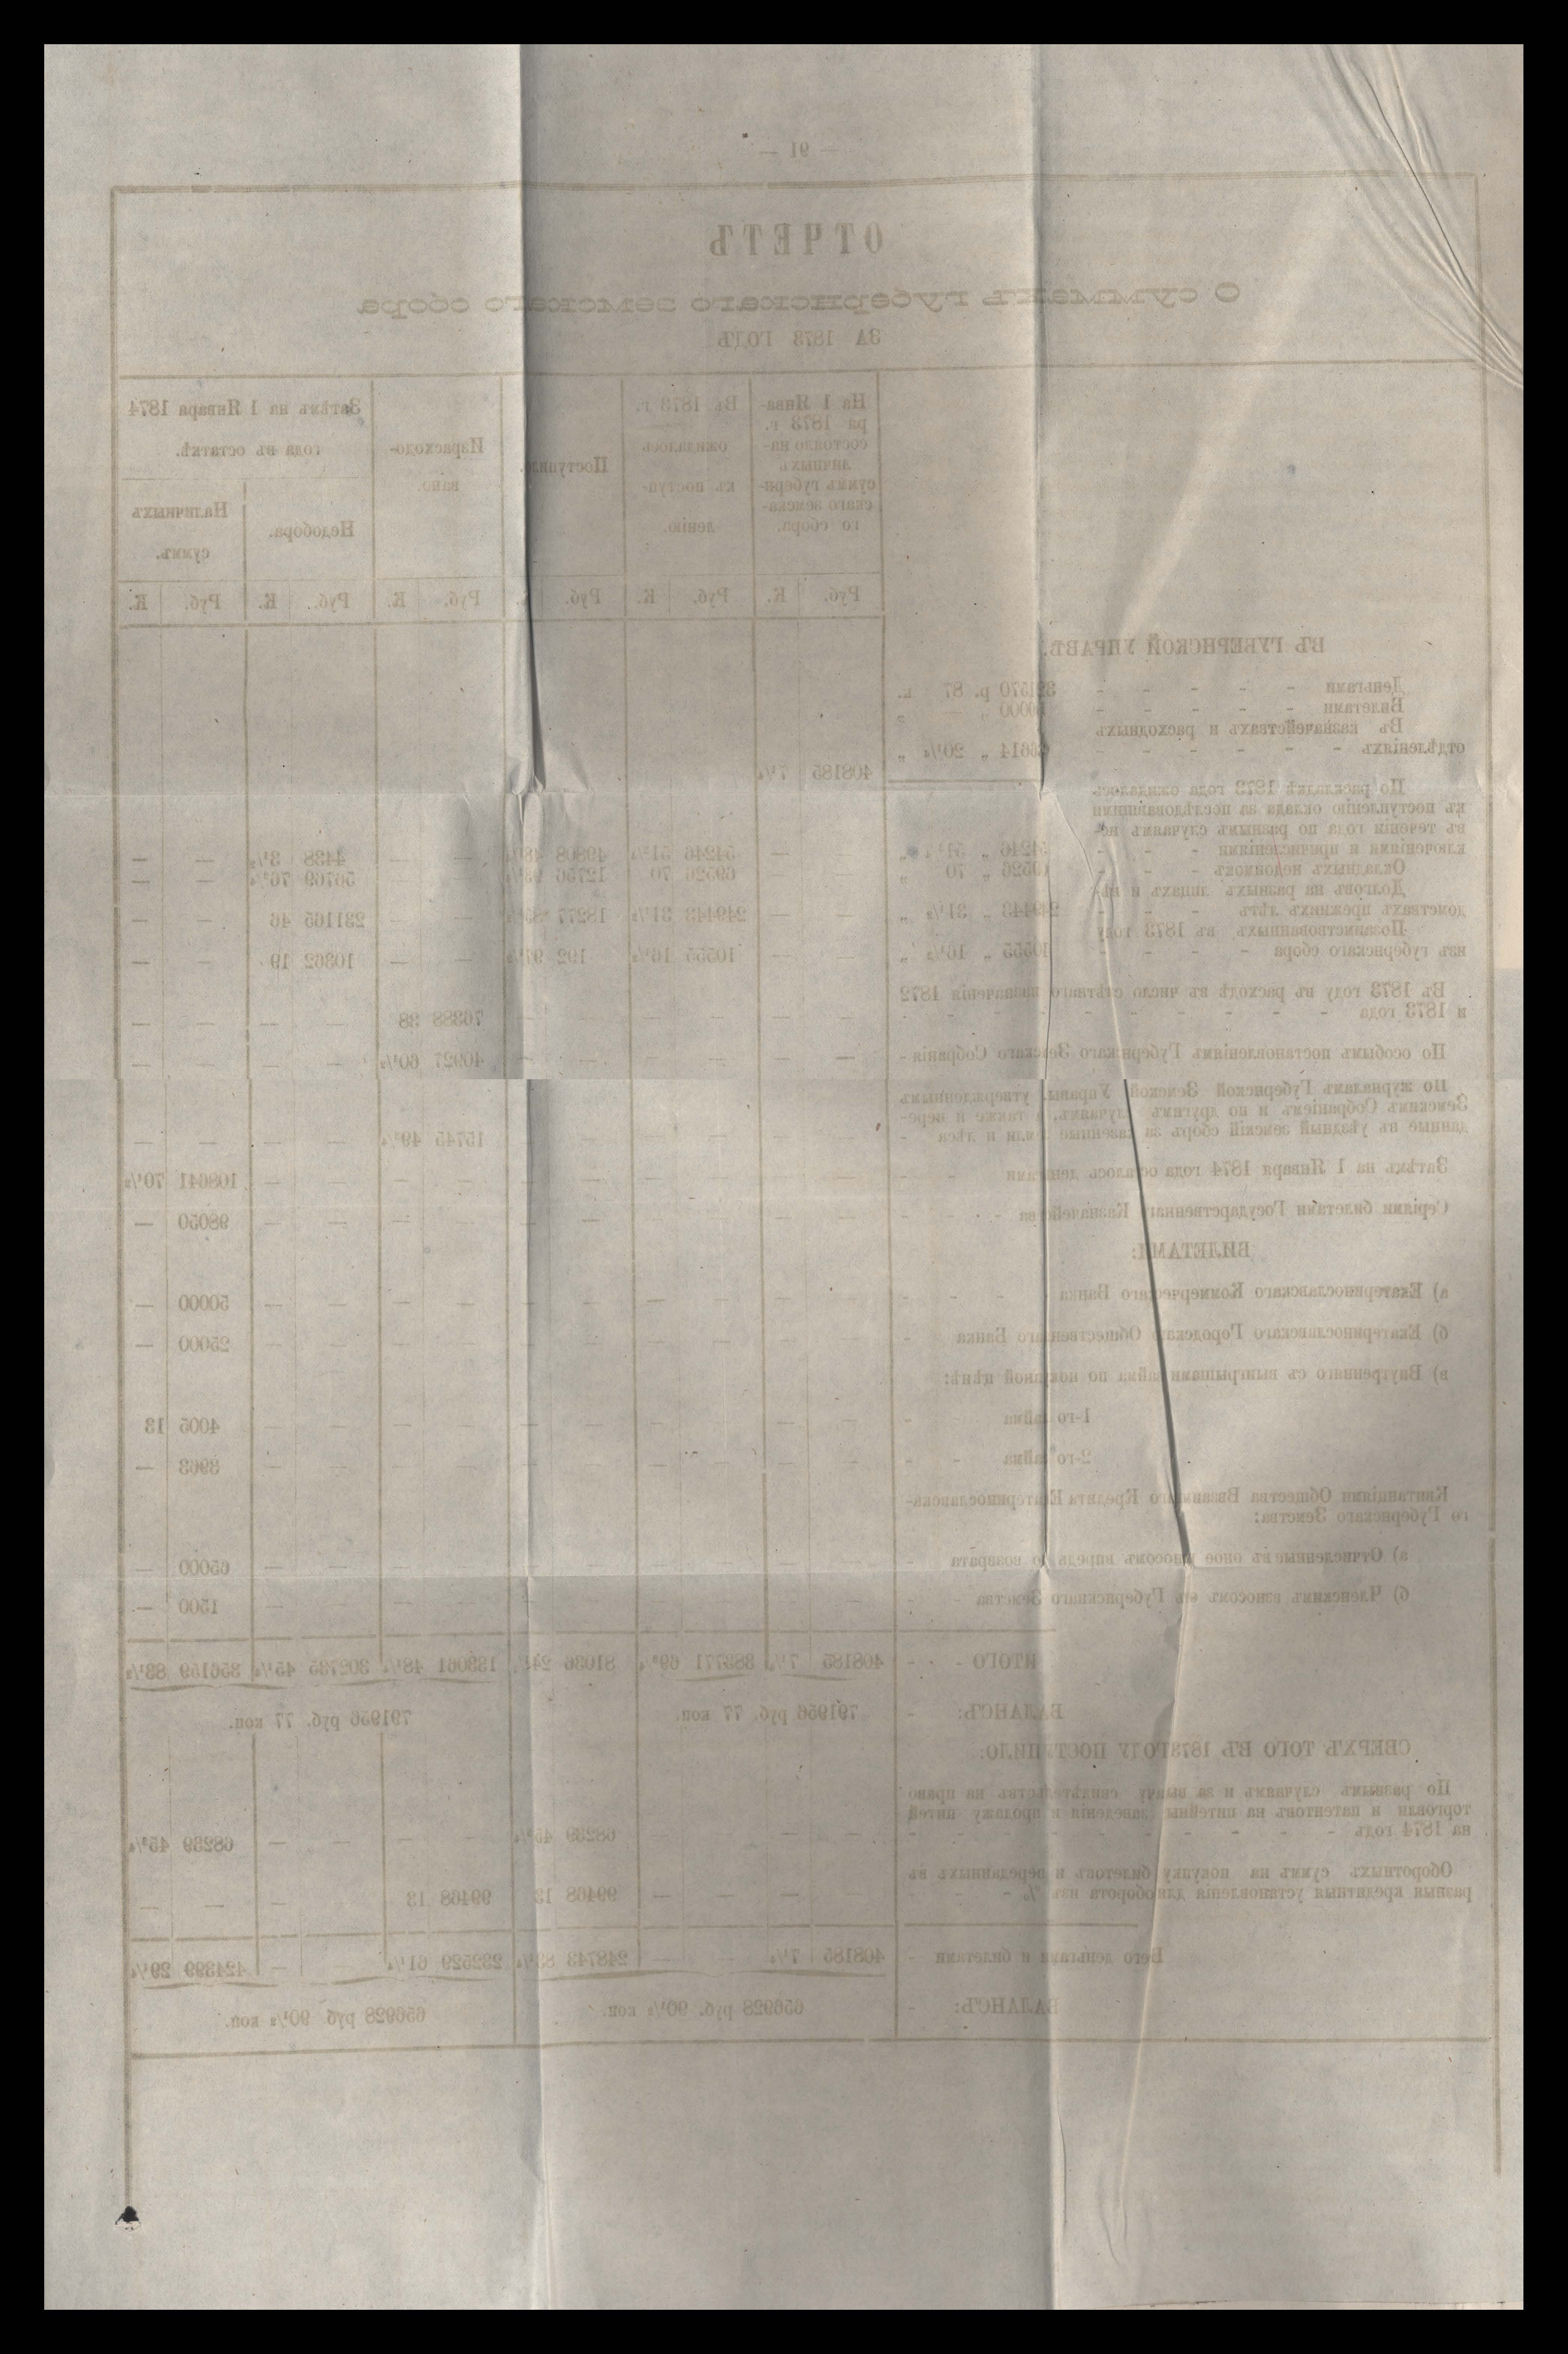 — 91 —
ОТЧЕТЪ
О суммахъ губернскаго земскаго сбора
ЗА 1873 ГОДЪ
На 1 Янва-
ра 1873 г.
состояло на-
личныхъ
суммъ губерн-
скаго земска-
го сбора.
Въ 1873 г.
ожидалось
къ поступ-
ленію.
Поступило.
Израсходо-
вано.
Затѣмъ на 1 Января 1874
года въ остаткѣ.
Недобора.
Наличныхъ
суммъ.
Руб. К. Руб. К. Руб. Руб. К. Руб. К. Руб. К.
ВЪ ГУБЕРНСКОЙ УПРАВѢ.
Деньгами - - - - - р. 87 к.
Билетами - - - - - „ — „
Въ казначействахъ и расходныхъ
отдѣленіяхъ - - - - - - „ 20¼ „
408185 7¼
По раскладкѣ 1873 года ожидалось
къ поступленію оклада за послѣдовавшими
въ теченіи года по разнымъ случаямъ ис-
ключеніями и причисленіями - - - 54246 „ 51¼ „ — — 54246 51¼ 49808 — — 4438 3½ — —
Окладныхъ недоимокъ - - 69526 „ 70 „ — — 69526 70 12756 — — 56769 76¼ — —
Долговъ на разныхъ лицахъ и вѣ-
домствахъ прежнихъ лѣтъ - - - 249443 „ 31½ „ — — 249443 31½ 18277 — — 231165 46 — —
Позаимствованныхъ въ 1873 году
изъ губернскаго сбора - - - - 10555 „ 16½ „ — — 10555 16½ 192 97½ — — 10362 19 — —
Въ 1873 году въ расходѣ въ число смѣтнаго назначенія 1872
и 1873 года - - - - - - - - - — — — — — — 76388 38 — — — —
По особымъ постановленіямъ Губернскаго Земскаго Собранія - — — — — — — 40927 60½ — — — —
По журналамъ Губернской Земской Управы, утвержденнымъ
Земскимъ Собраніемъ и по другимъ случаямъ, а также и пере-
данные въ уѣздный земскій сборъ за казенные земли и лѣса - — — — — — — 15745 49¾ — — — —
Затѣмъ на 1 Января 1874 года осталось деньгами - - — — — — — — — — — — 108641 70½
Серіями билетами Государственнаго Казначейства - - - - — — — — — — — — — — 98050 —
БИЛЕТАМИ:
а) Екатеринославскаго Коммерческаго Банка - - - - — — — — — — — — — — 50000 —
б) Екатеринославскаго Городскаго Общественнаго Банка - — — — — — — — — — — 25000 —
в) Внутренняго съ выигрышами займа по покупной цѣнѣ:
1-го займа - — — — — — — — — — — 4005 13
2-го займа - - — — — — — — — — — — 3963 —
Квитанціями Общества Взаимнаго Кредита Екатеринославска-
го Губернскаго Земства:
а) Отчисленные въ оное взносомъ впредь до возврата - — — — — — — — — — — 65000 —
б) Членскимъ взносомъ отъ Губернскаго Земства - - — — — — — — — — — — 1500 —
ИТОГО - - 408185 7¼ 383771 69¾ 81036 133061 48¼ 302735 45¼ 356159 83½
БАЛАНСЪ: - 791956 руб. 77 коп. 791956 руб. 77 коп.
СВЕРХЪ ТОГО ВЪ 1873 ГОДУ ПОСТУПИЛО:
По разнымъ случаямъ и за выдачу свидѣтельствъ на право
торговли и патентовъ на питейныя заведенія и продажу питей
на 1874 годъ - - - - - - - - - — — — — 68239 45¾ — — — — 68239 45¾
Оборотныхъ суммъ на покупку билетовъ и переданныхъ въ
разныя кредитныя установленія для оборота изъ % - - - — — — — 99468 13 99468 13 — — — —
Всего деньгами и билетами - 408185 7¼ — — 248743 83¼ 232529 61¼ — — 424399 29¼
БАЛАНСЪ: - 656928 руб. 90½ коп. 656928 руб. 90½ коп.